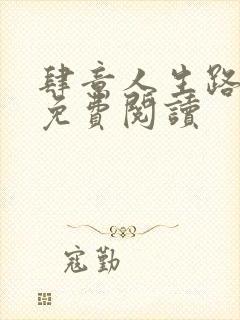 肆意人生路
免費閱讀
寇勤